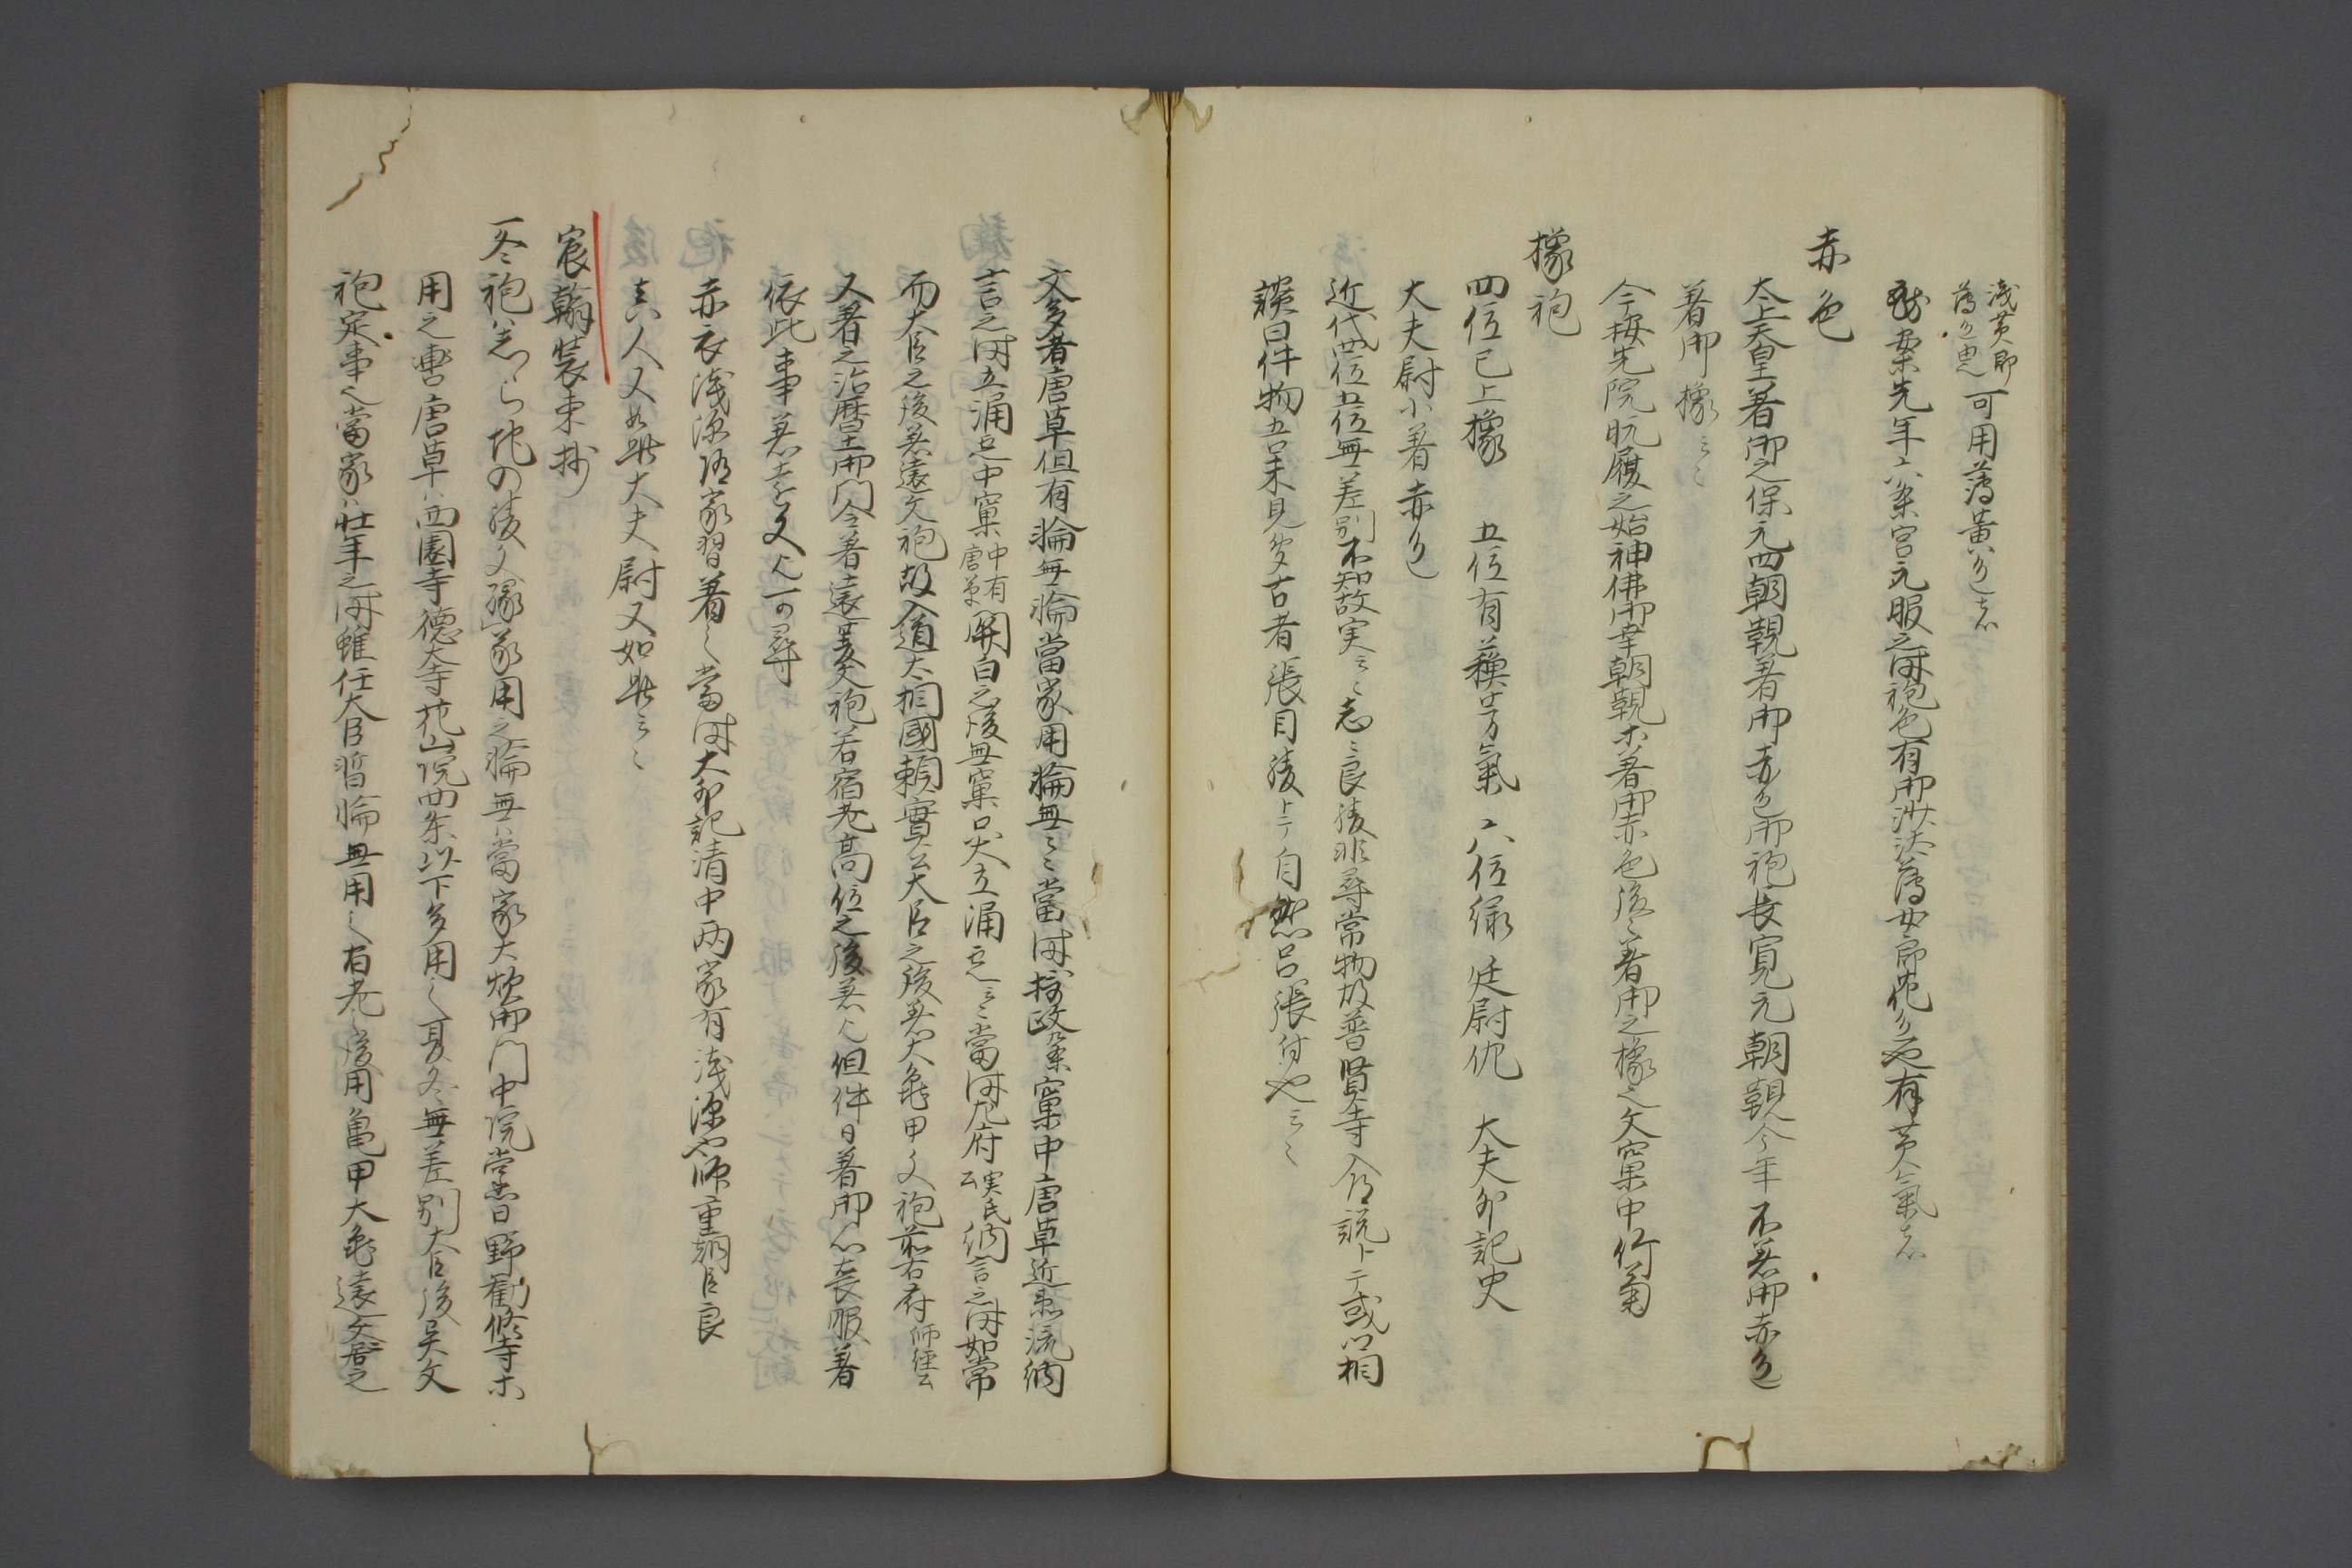 浅黄即
薄色也 可用薄黄色云
案先年六条宮元服之時袍色有御沙汰薄女郎花色也有黄気云
赤色
太上天皇著御之保元四朝覲著御赤色御袍長寛元朝覲今年不着御赤色
著御橡云々
今按先院脱履之始神佛御幸朝覲等著御赤色後々著御之橡之文窠中竹菊
橡袍
四位已上橡 五位有蘓芳氣 六位緑 廷尉 大夫外記史
大夫尉小著赤色
近代四位五位無差別不知故実云々志々良綾非尋常物故普賢寺入道説トテ或以相
誤曰件物五 未見 古者張目綾ト テ自然 張付也云々
文多者唐草但有輪無輪當家用輪無云々當時摂政 窠中唐草近患流納
言之時立涌也中窠中有唐草関白之後無窠只大立涌也云々當時左府実氏公納言之時如常
而大臣之後着遠文袍故入道太相國頼實公大臣之後着大亀甲文袍前右府師経公
又著之治暦土御門 今著遠菱文袍若宿老高位之後着也但件日著御 喪服著
依此事着 文也可尋
赤衣浅深随家習著之當時大外記清中両家有浅深也師重朝臣良
真人又如此大夫尉又如此云々
宸翰装束抄
一冬袍ハ志ゝら地の綾文縁家用之輪無ハ當家大炊御門中院 日野勧修寺等
用之轡唐草ハ西園寺徳大寺花山院四条以下多用之夏冬無差別大臣後異文
袍定事也當家ハ壮年之時雖任大臣暫輪無用之宿老後用亀甲大亀遠文 之